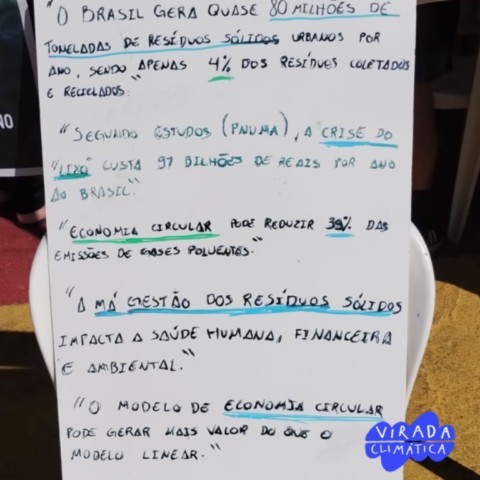 "O BRASIL GERA QUASE 80 MILHÕES DE
TONELADAS DE RESÍDUOS SÓLIDOS URBANOS POR
ANO, SENDO APENAS 4% DOS RESÍDUOS COLETADOS
E RECICLADOS."
"SEGUNDO ESTUDOS (PNUMA), A CRISE DO
"LIXO" CUSTA 97 BILHÕES DE REAIS POR ANO
AO BRASIL."
"ECONOMIA CIRCULAR PODE REDUZIR 39% DAS
EMISSÕES DE GASES POLUENTES."
"A MÁ GESTÃO DOS RESÍDUOS SÓLIDOS
IMPACTA A SAÚDE HUMANA, FINANCEIRA
E AMBIENTAL."
"O MODELO DE ECONOMIA CIRCULAR
PODE GERAR MAIS VALOR DO QUE O
MODELO LINEAR."
VIRADA
CLIMÁTICA